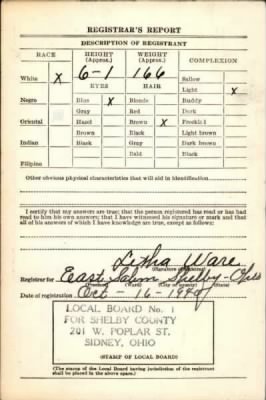 REGISTRAR'S REPORT
DESCRIPTION OF REGISTRANT
RACE HEIGHT (Approx.) WEIGHT (Approx.) COMPLEXION
White X 6-1 166 Sallow
EYES HAIR Light X
Negro Blue X Blonde Ruddy
Gray Red Dark
Oriental Hazel Brown X Freckled
Brown Black Light brown
Indian Black Gray Dark brown
Bald Black
Filipino
Other obvious physical characteristics that will aid in identification
I certify that my answers are true; that the person registered has read or has had
read to him his own answers; that I have witnessed his signature or mark and that
all of his answers of which I have knowledge are true, except as follows:
Ware
(Signature of registrar)
Registrar for East Salem Shelby - Ohio
(Precinct) (City or county) (State)
Date of registration Oct - 16 - 1940
LOCAL BOARD No. 1
FOR SHELBY COUNTY
201 W. POPLAR ST.
SIDNEY, OHIO
(STAMP OF LOCAL BOARD)
(The stamp of the Local Board having jurisdiction of the registrant
shall be placed in the above space.)